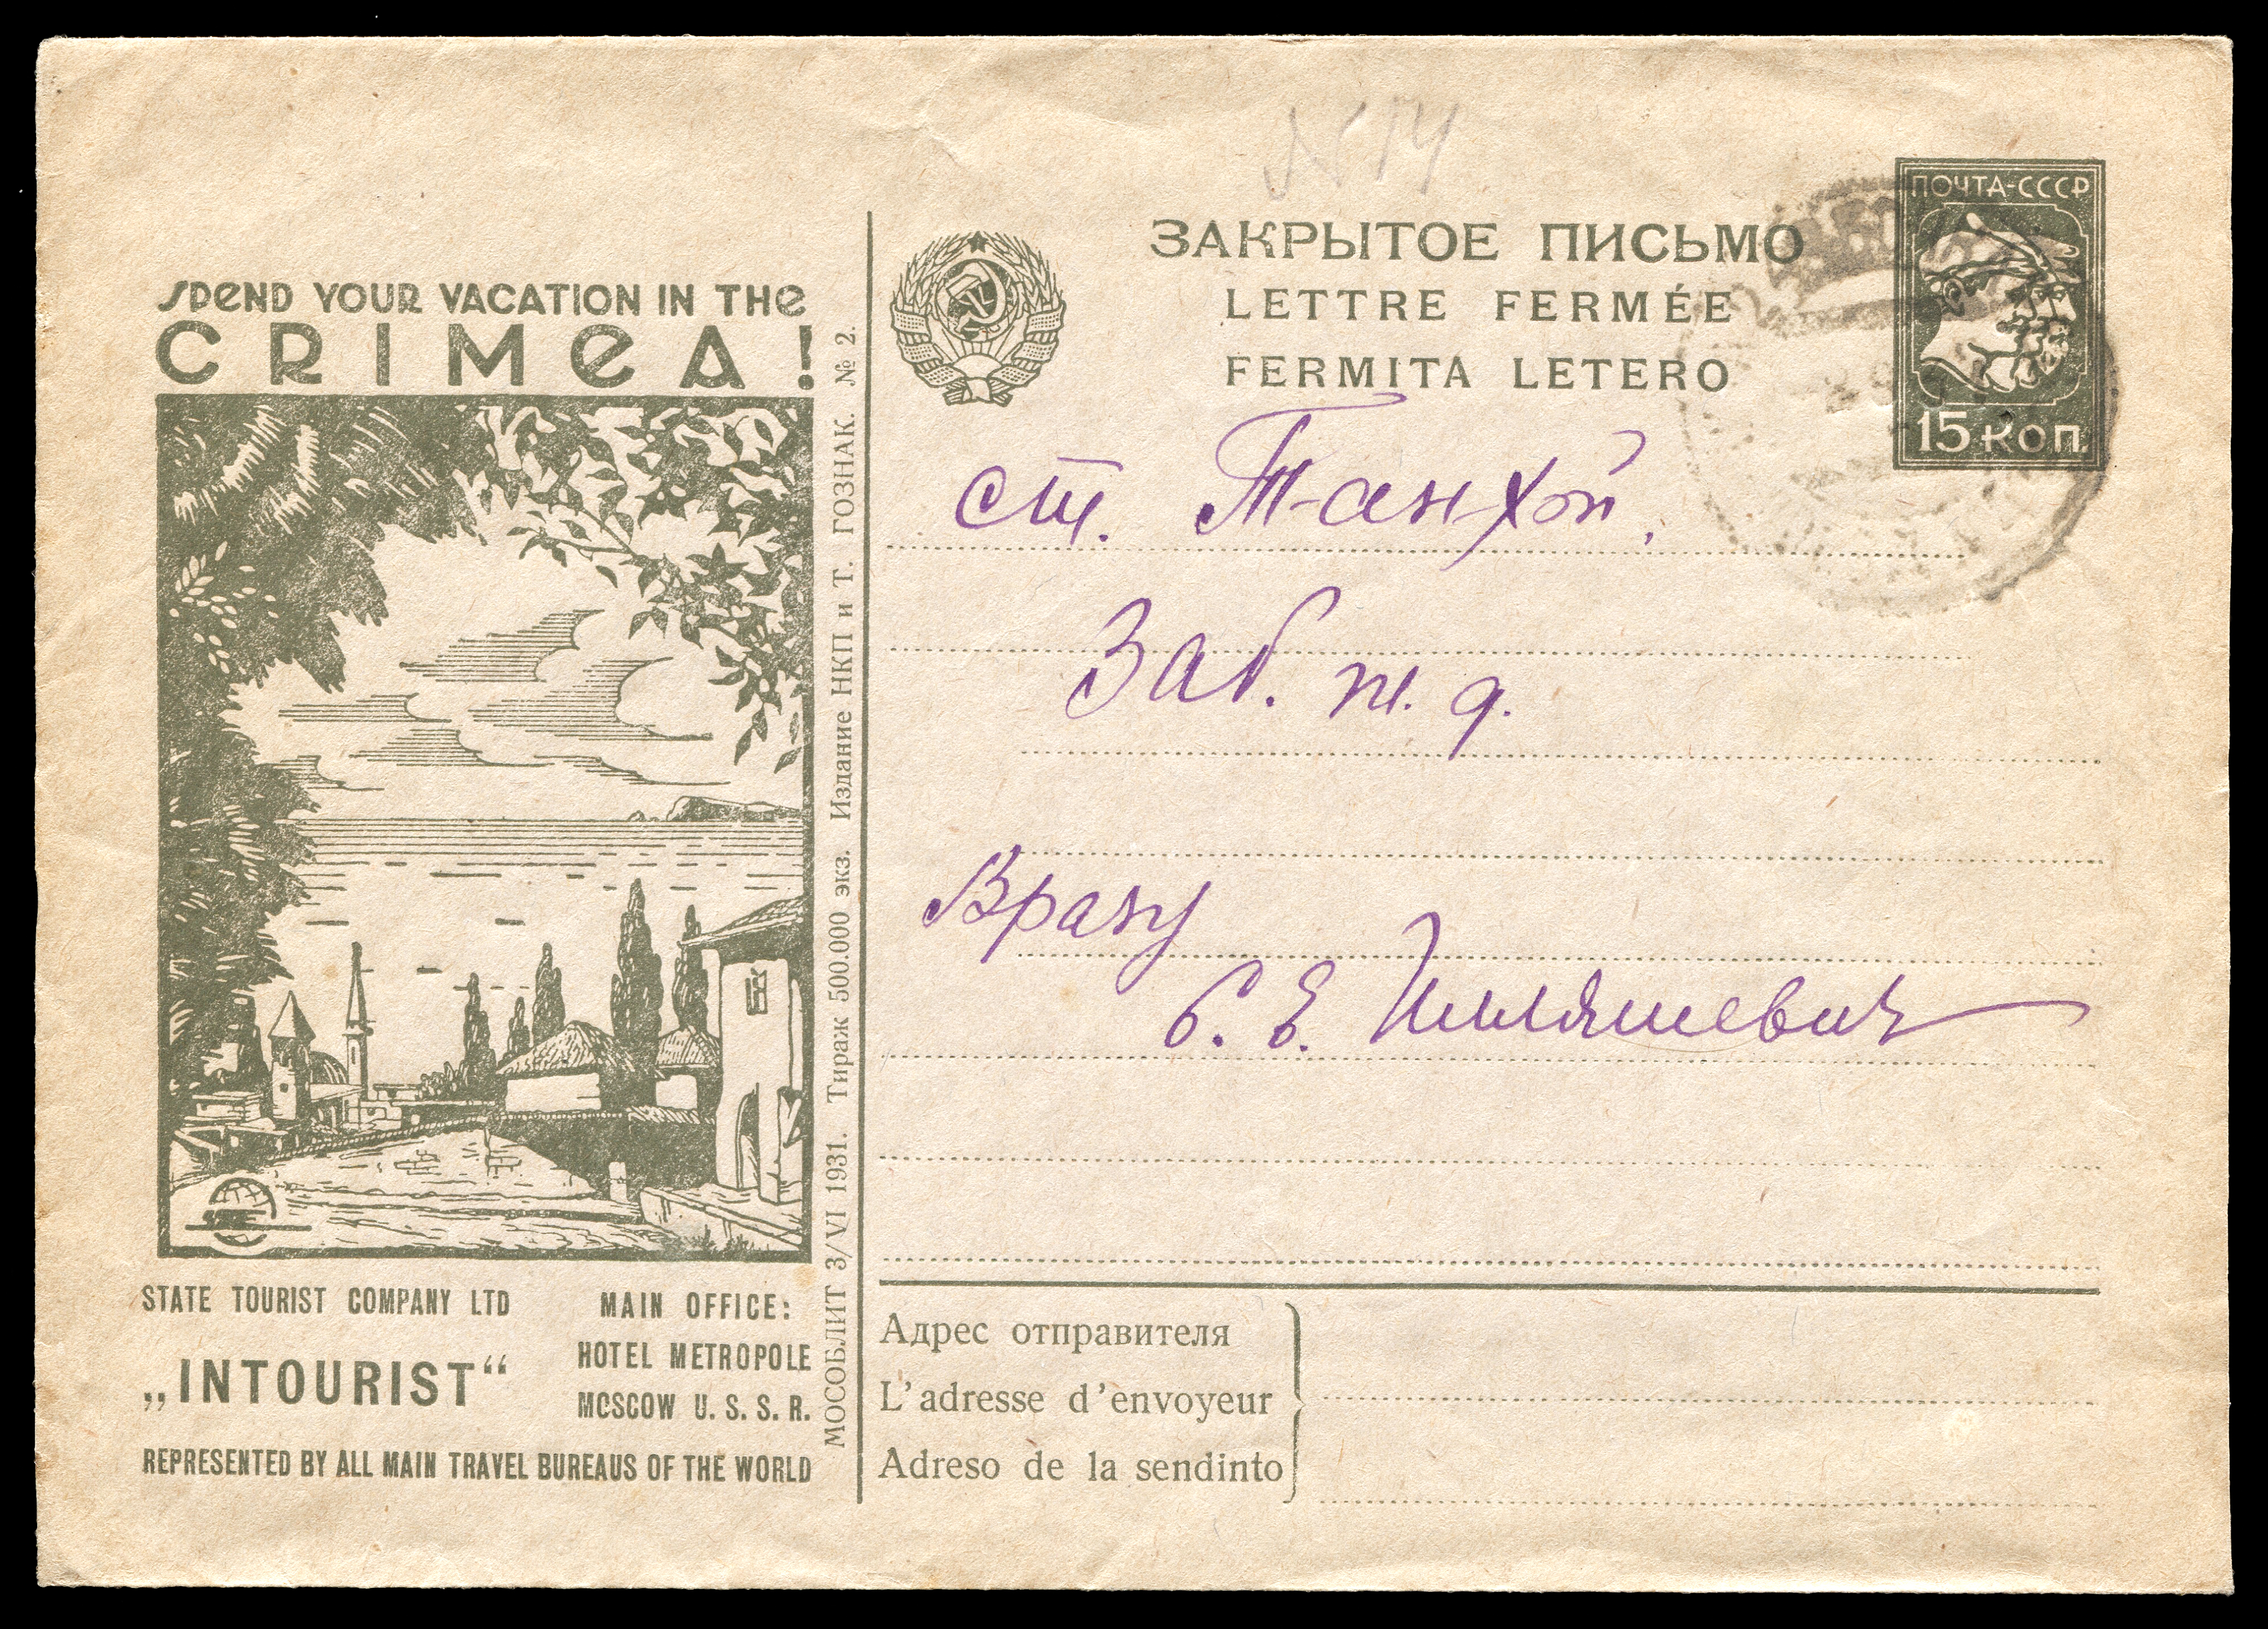 SPEND YOUR VACATION IN THE
CRIMEA!
STATE TOURIST COMPANY LTD
„INTOURIST“
MAIN OFFICE:
HOTEL METROPOLE
MOSCOW U. S. S. R.
REPRESENTED BY ALL MAIN TRAVEL BUREAUS OF THE WORLD
МОСОБЛИТ 3/VI 1931. Тираж 500.000 экз. Издание НКП и Т. ГОЗНАК. № 2.
N 14
ЗАКРЫТОЕ ПИСЬМО
LETTRE FERMÉE
FERMITA LETERO
ПОЧТА-СССР
15 КОП.
ст. Танхой,
Заб. ж. д.
Врачу
Адрес отправителя
L'adresse d'envoyeur
Adreso de la sendinto